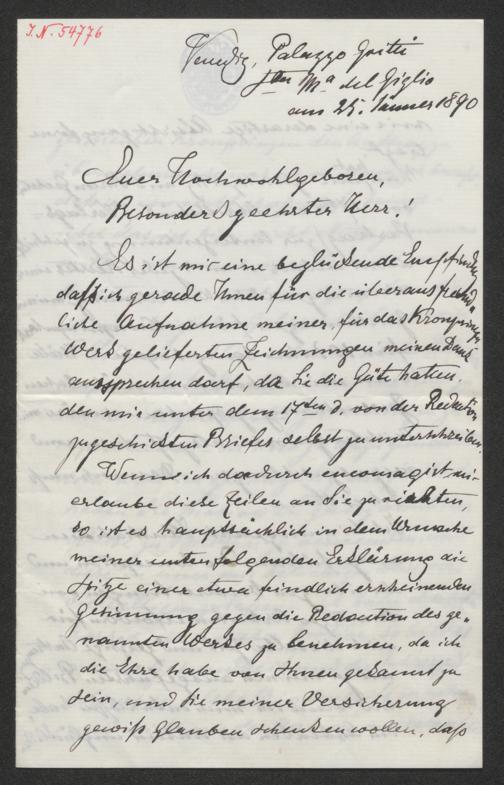 I. N. 54776
Venedig, Palazzo Gritti
Sta Ma del Giglio
am 25. Jänner 1890
Euer Hochwohlgeboren,
Besonders geehrter Herr!
Es ist mir eine beglückende Empfindung,
daß ich gerade Ihnen für die überaus freund„
liche Aufnahme meiner, für das Kronprinzen
Werk gelieferten Zeichnungen meinen Dank
aussprechen darf, da Sie die Güte hatten
den mir unter dem 17ten d. von der Redaction
zugeschickten Briefes selbst zu unterschreiben.
Wenn ich dadurch encouragirt mir
erlaube diese Zeilen an Sie zu richten,
so ist es hauptsächlich in dem Wunsche
meiner untenfolgenden Erklärung die
Spitze einer etwa feindlich erscheinenden
Gesinnung gegen die Redaction des ge„
nannten Werkes zu benehmen, da ich
die Ehre habe von Ihnen gekannt zu
sein, und Sie meiner Versicherung
gewiß Glauben schenken wollen, daß